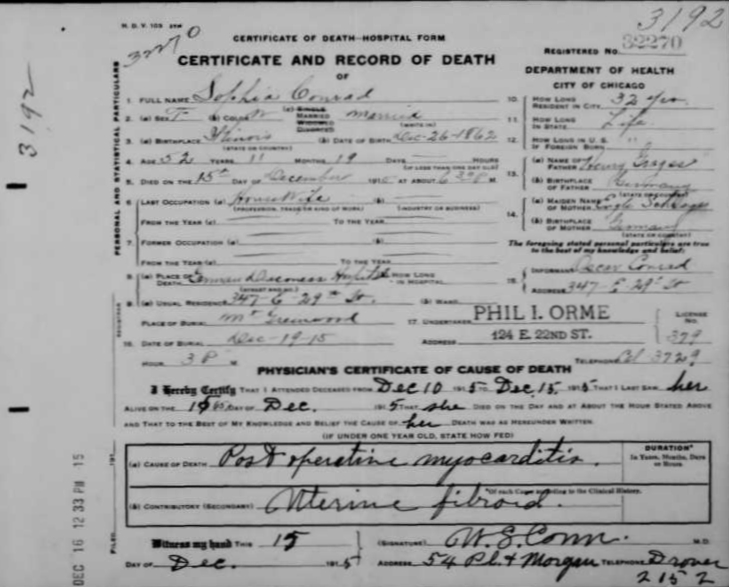 H. D. V. 103
3192
32270
CERTIFICATE OF DEATH—HOSPITAL FORM
REGISTERED No. 32270
CERTIFICATE AND RECORD OF DEATH
OF
DEPARTMENT OF HEALTH
CITY OF CHICAGO
3192
PERSONAL AND STATISTICAL PARTICULARS
1. FULL NAME Sophia Conrad
2. (a) SEX F (b) COLOR W (c) SINGLE MARRIED WIDOWED DIVORCED married
(WRITE IN)
3. (a) BIRTHPLACE Illinois (b) DATE OF BIRTH Dec-26-1862
(STATE OR COUNTRY)
4. AGE 52 YEARS 11 MONTHS 19 DAYS HOURS
(IF LESS THAN ONE DAY OLD)
5. DIED ON THE 15th DAY OF December 1915 AT ABOUT 6 30 P M.
6. LAST OCCUPATION (a) Housewife (b)
(PROFESSION, TRADE OR KIND OF WORK) (INDUSTRY OR BUSINESS)
FROM THE YEAR (a) TO THE YEAR
7. FORMER OCCUPATION (a) (b)
FROM THE YEAR (a) TO THE YEAR
8. (a) PLACE OF DEATH German Deaconess Hospital HOW LONG IN HOSPITAL
(STREET AND NO.)
9. (a) USUAL RESIDENCE 347 E 29th St. (b) WARD
PLACE OF BURIAL Mt Greenwood
16. DATE OF BURIAL Dec-19-15
HOUR 3 P M
10. HOW LONG RESIDENT IN CITY 32 yrs
11. HOW LONG IN STATE Life
12. HOW LONG IN U.S. IF FOREIGN BORN "
13. (a) NAME OF FATHER Henry
(b) BIRTHPLACE OF FATHER Germany
(STATE OR COUNTRY)
14. (a) MAIDEN NAME OF MOTHER
(b) BIRTHPLACE OF MOTHER Germany
(STATE OR COUNTRY)
The foregoing stated personal particulars are true to the best of my knowledge and belief:
15. INFORMANT Oscar Conrad
ADDRESS 347 E 29th St
17. UNDERTAKER PHIL I. ORME
ADDRESS 124 E. 22ND ST.
LICENSE No. 379
TELEPHONE Cal 3729
PHYSICIAN'S CERTIFICATE OF CAUSE OF DEATH
I Hereby Certify THAT I ATTENDED DECEASED FROM Dec 10 1915 TO Dec. 15, 1915 THAT I LAST SAW her
ALIVE ON THE 15 DAY OF Dec. 1915 THAT she DIED ON THE DAY AND AT ABOUT THE HOUR STATED ABOVE
AND THAT TO THE BEST OF MY KNOWLEDGE AND BELIEF THE CAUSE OF her DEATH WAS AS HEREUNDER WRITTEN.
(IF UNDER ONE YEAR OLD, STATE HOW FED)
(a) CAUSE OF DEATH Post operative myocarditis.
DURATION*
In Years, Months, Days or Hours
(b) CONTRIBUTORY (SECONDARY) Uterine fibroid.
*Of each Cause according to the Clinical History.
Witness my hand THIS 15 (SIGNATURE) W. E. Conn. M.D.
DAY OF Dec. 1915 ADDRESS 54 Pl. & Morgan TELEPHONE Drover 2152
FILED 191
DEC 16 12 33 PM 15